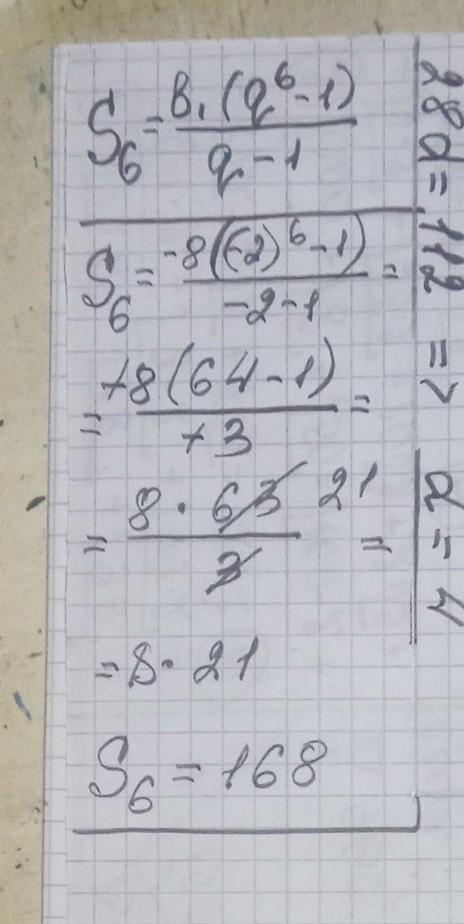 S₆ = b₁(q⁶-1) / q-1
S₆ = -8((-2)⁶-1) / -2-1 =
= +8(64-1) / +3 =
= 8·63 21 / 3 =
= 8·21
S₆ = 168
28d = 112 => d = 4